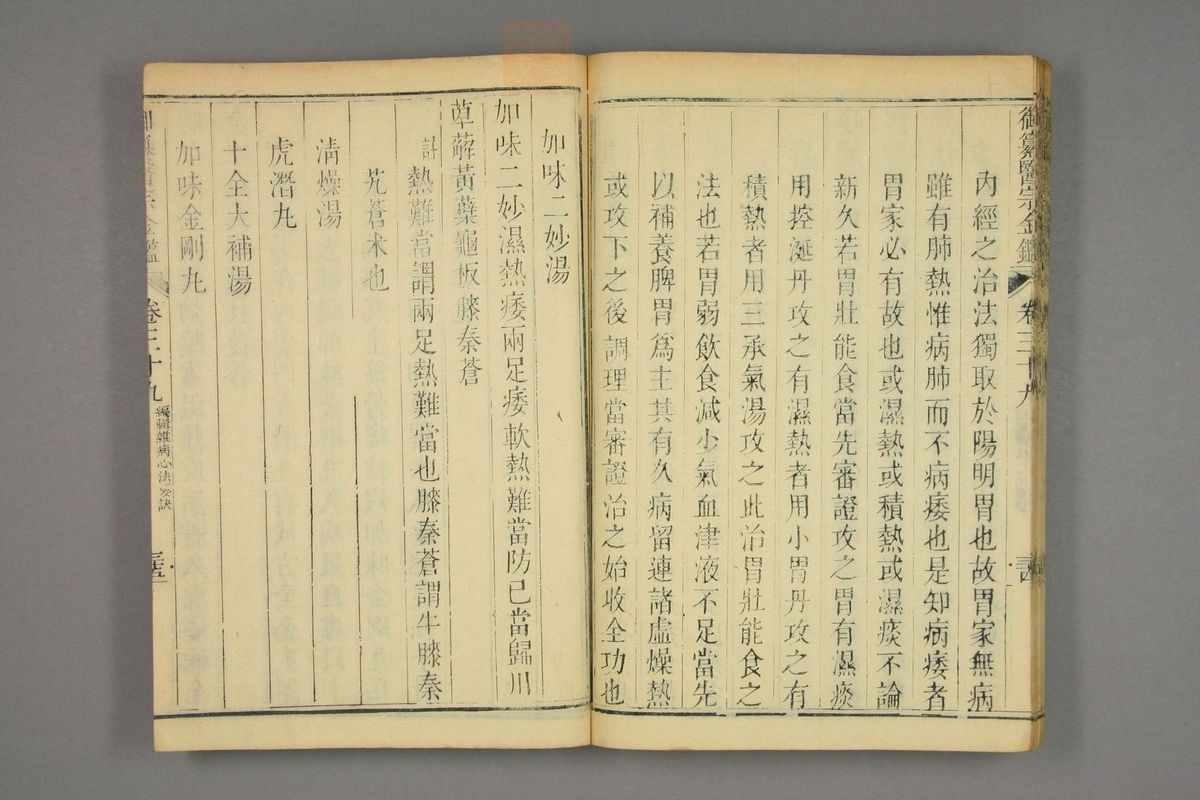 御纂醫宗金鑑 卷三十九
內經之治法獨取於陽明胃也故胃家無病
雖有肺熱惟病肺而不病痿也是知病痿者
胃家必有故也或濕熱或積熱或濕痰不論
新久若胃壯能食當先審證攻之胃有濕痰
用控涎丹攻之有濕熱者用小胃丹攻之有
積熱者用三承氣湯攻之此治胃壯能食之
法也若胃弱飲食減少氣血津液不足當先
以補養脾胃爲主其有久病留連諸虛燥熱
或攻下之後調理當審證治之始收全功也
加味二妙湯
加味二妙濕熱痿兩足痿軟熱難當防已當歸川
萆薢黃蘗龜板膝秦蒼
註熱難當謂兩足熱難當也膝秦蒼謂牛膝秦
艽蒼朮也
清燥湯
虎潛丸
十全大補湯
加味金剛丸
卷三十九 編輯雜病心法要訣